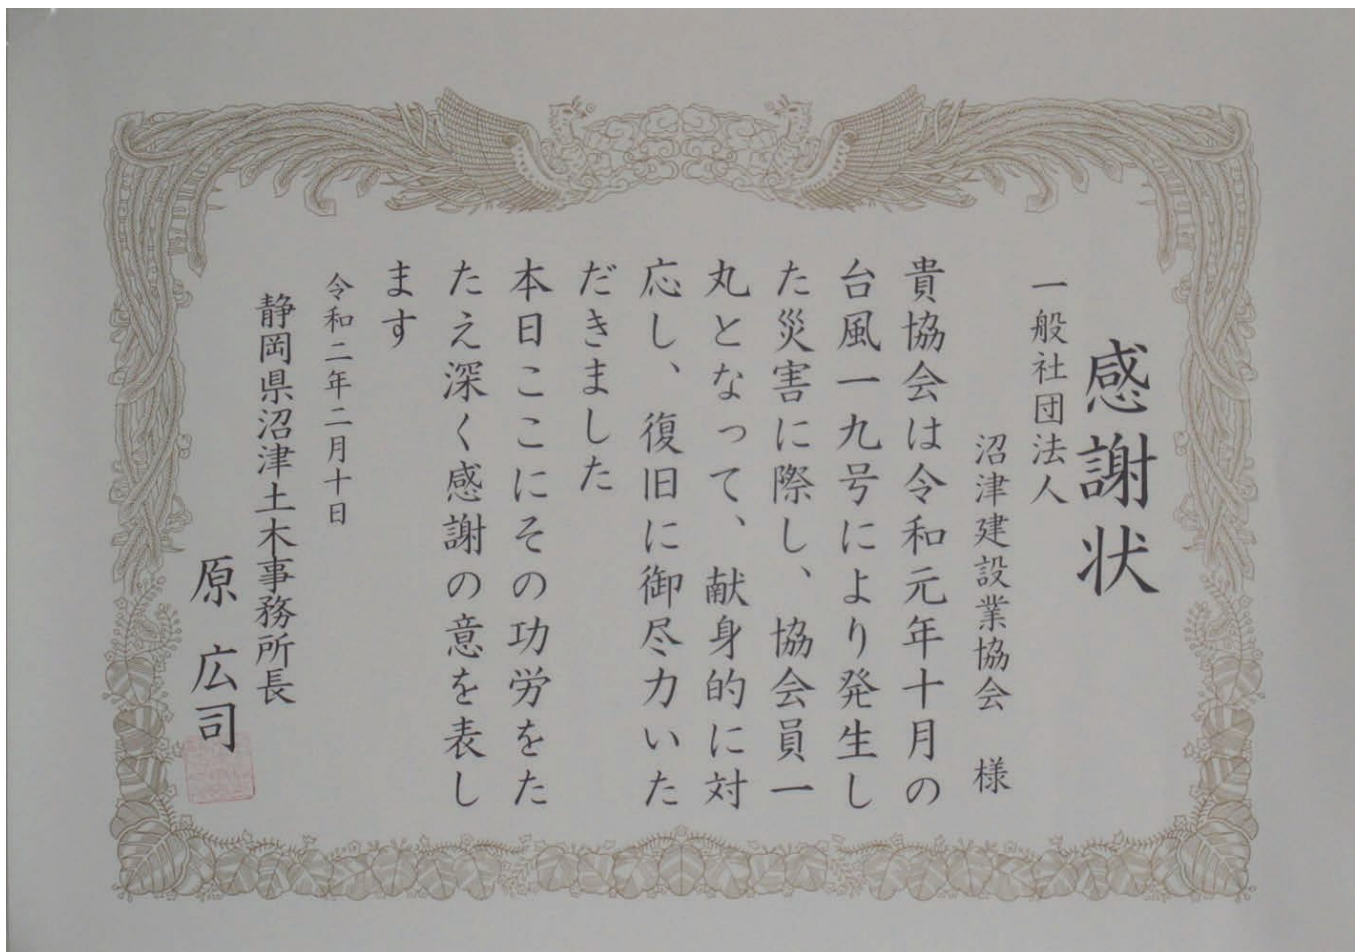 感謝状
一般社団法人
沼津建設業協会 様
貴協会は令和元年十月の
台風一九号により発生し
た災害に際し、協会員一
丸となって、献身的に対
応し、復旧に御尽力いた
だきました
本日ここにその功労をた
たえ深く感謝の意を表し
ます
令和二年二月十日
静岡県沼津土木事務所長
原 広司